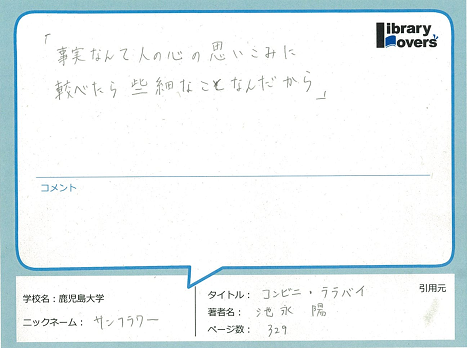 Library Lovers'
「事実なんて人の心の思いこみに
較べたら些細なことなんだから」
コメント
学校名：鹿児島大学
ニックネーム：サンフラワー
タイトル：コンビニ・ララバイ
引用元
著者名：池永 陽
ページ数：329